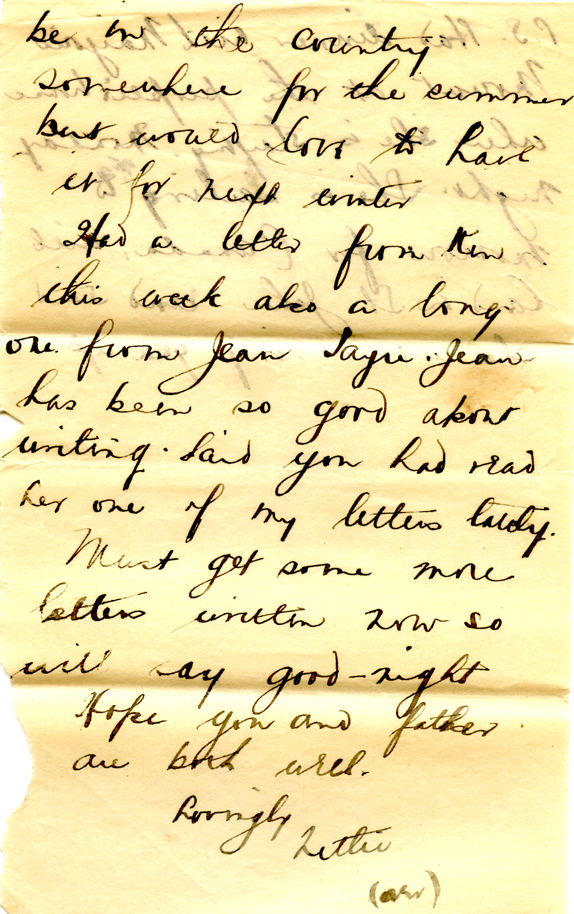 be in the country
somewhere for the summer
but would love to have
it for next winter
Had a letter from Ken
this week also a long
one from Jean Sayre. Jean
has been so good about
writing. Said you had read
her one of my letters lately.
Must get some more
letters written now so
will say good-night
Hope you and father
are both well.
Lovingly
Lettie
(over)